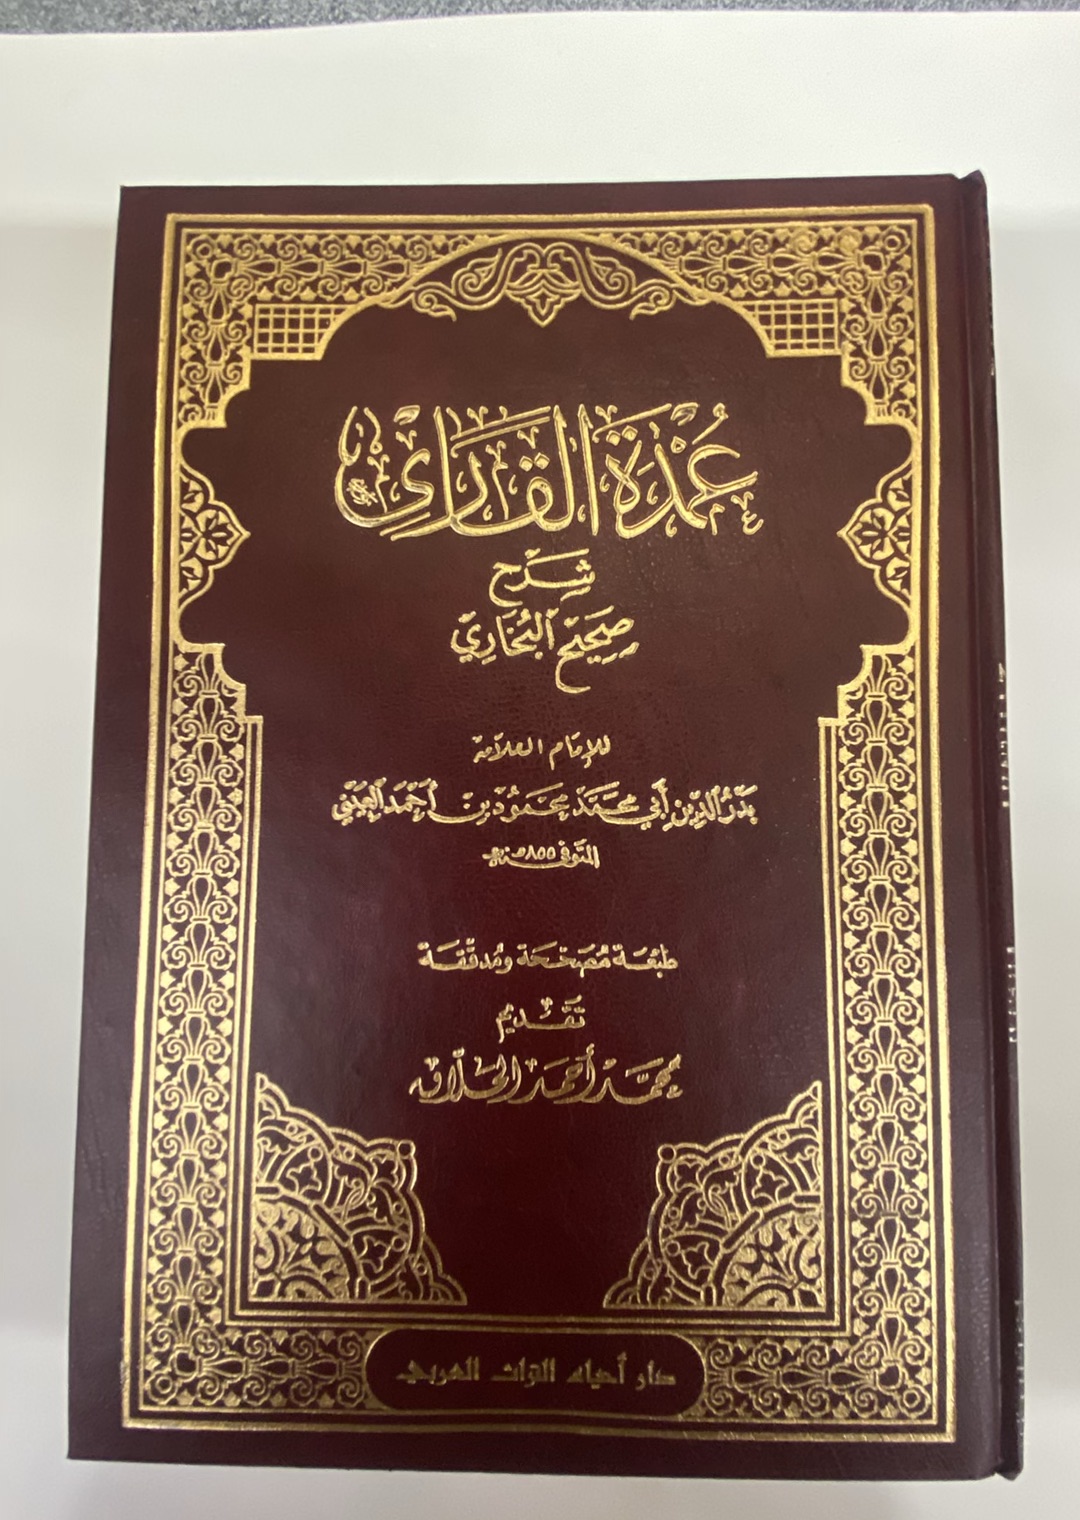 عُمْدَةُ القَارَئِ
شَرْح
صَحِيْح البُخَارِيّ
للإمَام العلاّمة
بَدْرُ الدِّين أَبي محَمَّد مَحمُود بْن أَحْمَد العَيني
المتَوفى سنة ٨٥٥ هـ
طبْعَة مُصَحَّحَة ومُدقّقَة
تَقْديم
محَمَّد أَحْمَد الحَلاّق
دار أحياء التراث العربي